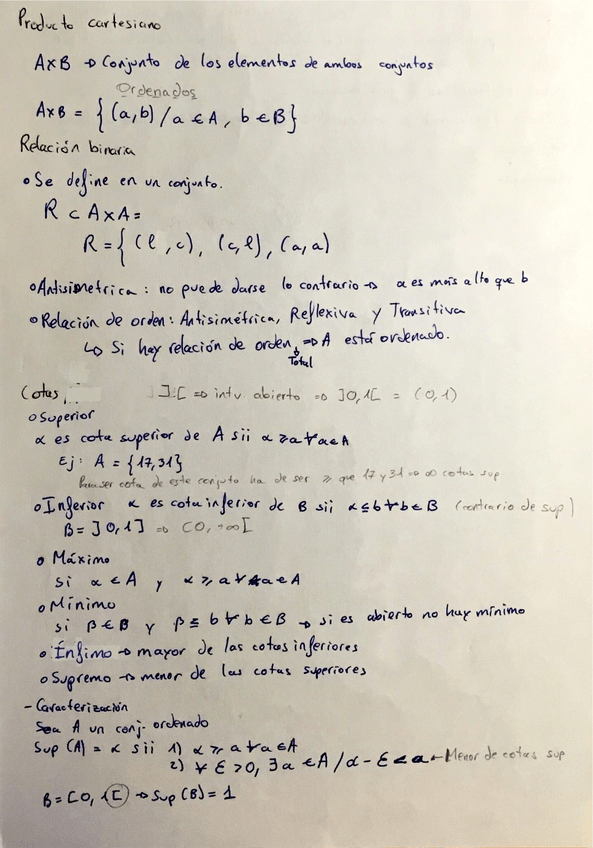 Producto cartesiano
A×B → Conjunto de los elementos de ambos conjuntos
Ordenados
A×B = { (a,b) / a ∈ A, b ∈ B}
Relación binaria
• Se define en un conjunto.
R ⊂ A×A =
R = { (l,c), (c,l), (a,a)
• Antisimétrica: no puede darse lo contrario → a es más alto que b
• Relación de orden: Antisimétrica, Reflexiva y Transitiva
↳ Si hay relación de orden ⇒ A está ordenado.
Total
Cotas
]:[ ⇒ intv. abierto ⇒ ]0,1[ = (0,1)
• Superior
α es cota superior de A sii α ≥ a ∀ a ∈ A
Ej: A = {17,31}
Para ser cota de este conjunto ha de ser ≥ que 17 y 31 ⇒ ∞ cotas sup
• Inferior α es cota inferior de B sii α ≤ b ∀ b ∈ B (contrario de sup)
B = ]0,1] ⇒ [0,-∞[
• Máximo
si α ∈ A y α ≥ a ∀ a ∈ A
• Mínimo
si β ∈ B y β ≤ b ∀ b ∈ B → si es abierto no hay mínimo
• Ínfimo → mayor de las cotas inferiores
• Supremo → menor de las cotas superiores
- Caracterización
Sea A un conj. ordenado
Sup (A) = α sii 1) α ≥ a ∀ a ∈ A
2) ∀ ε > 0, ∃ a ∈ A / α - ε < a ← Menor de cotas sup
B = [0,1[ → Sup (B) = 1